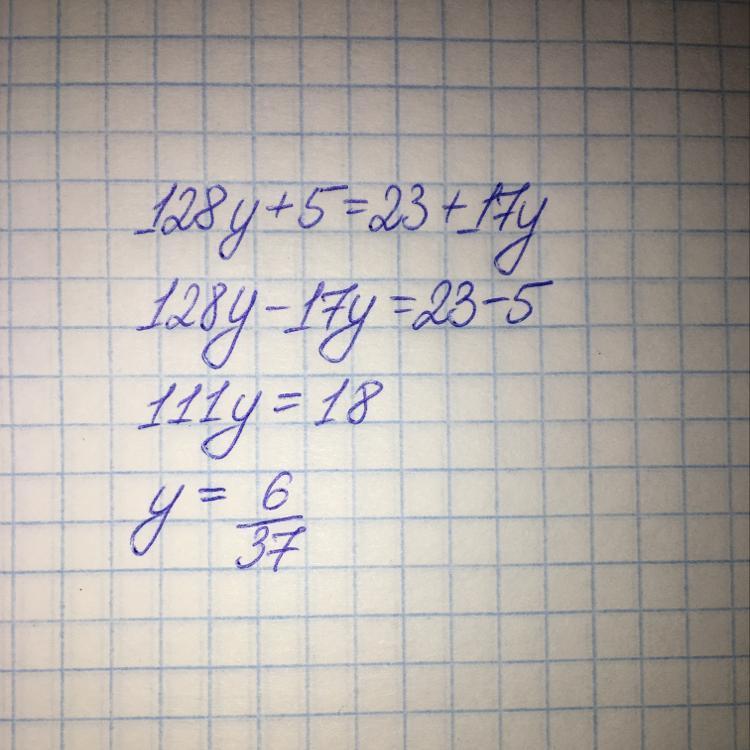 128y+5=23+17y
128y-17y=23-5
111y=18
y=6/37